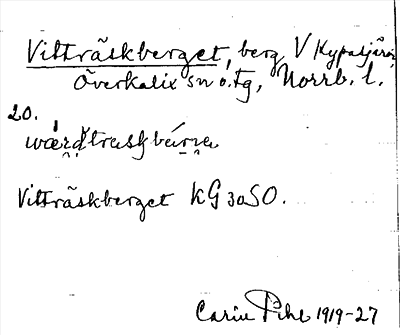 Vitträskberget, berg V Kypasjärv,
Överkalix sn o. tg, Norrb. l.
20.
Vitträskberget KG 30 SO.
Carin Pihl 1919-27